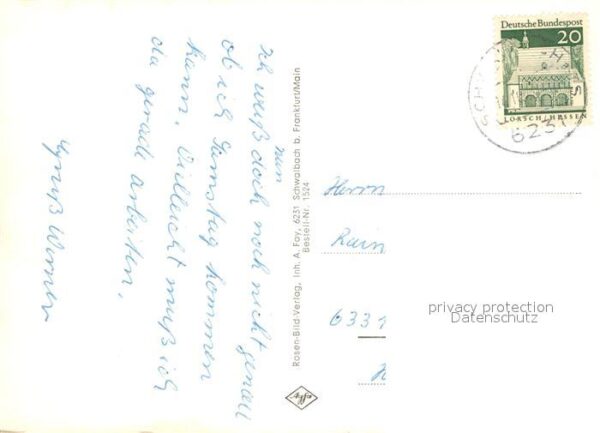 Ich weiß doch noch nicht genau
nun
ob ich Samstag kommen
kann. Vielleicht muß ich
da gerade arbeiten.
Gruß Werner
Rosen-Bild-Verlag, Inh. A. Fay, 6231 Schwalbach b. Frankfurt/Main
Bestell-Nr. 1524
Deutsche Bundespost
20
LORSCH/HESSEN
6231
Herrn
Rain
633
privacy protection
Datenschutz